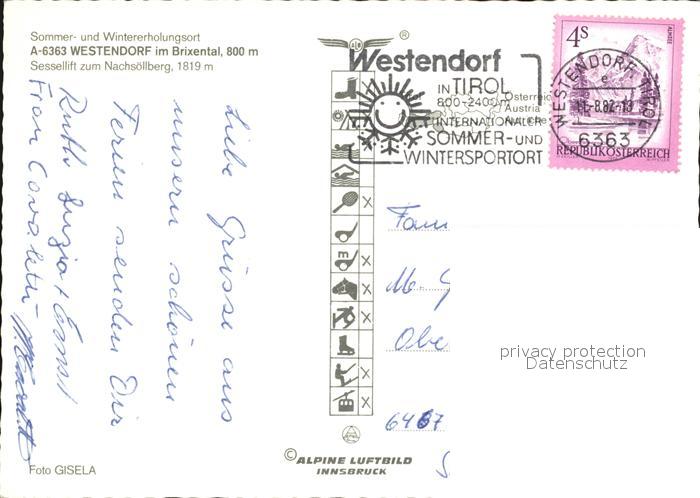 Sommer- und Wintererholungsort
A-6363 WESTENDORF im Brixental, 800 m
Sessellift zum Nachsöllberg, 1819 m
Liebe Grüsse aus
unsern schönen
Ferien senden Dir
Ruth Luzia + Ernst
Frau
Foto GISELA
®
Westendorf
IN TIROL
800-2400 m
INTERNATIONALER
SOMMER- UND
WINTERSPORTORT
Österreich
Austria
Autriche
4S
ALMSEE
REPUBLIK ÖSTERREICH
WESTENDORF, TIROL
e
11.-8.82-18
6363
Fam
M. G
Obe
6467
privacy protection
Datenschutz
© ALPINE LUFTBILD
INNSBRUCK